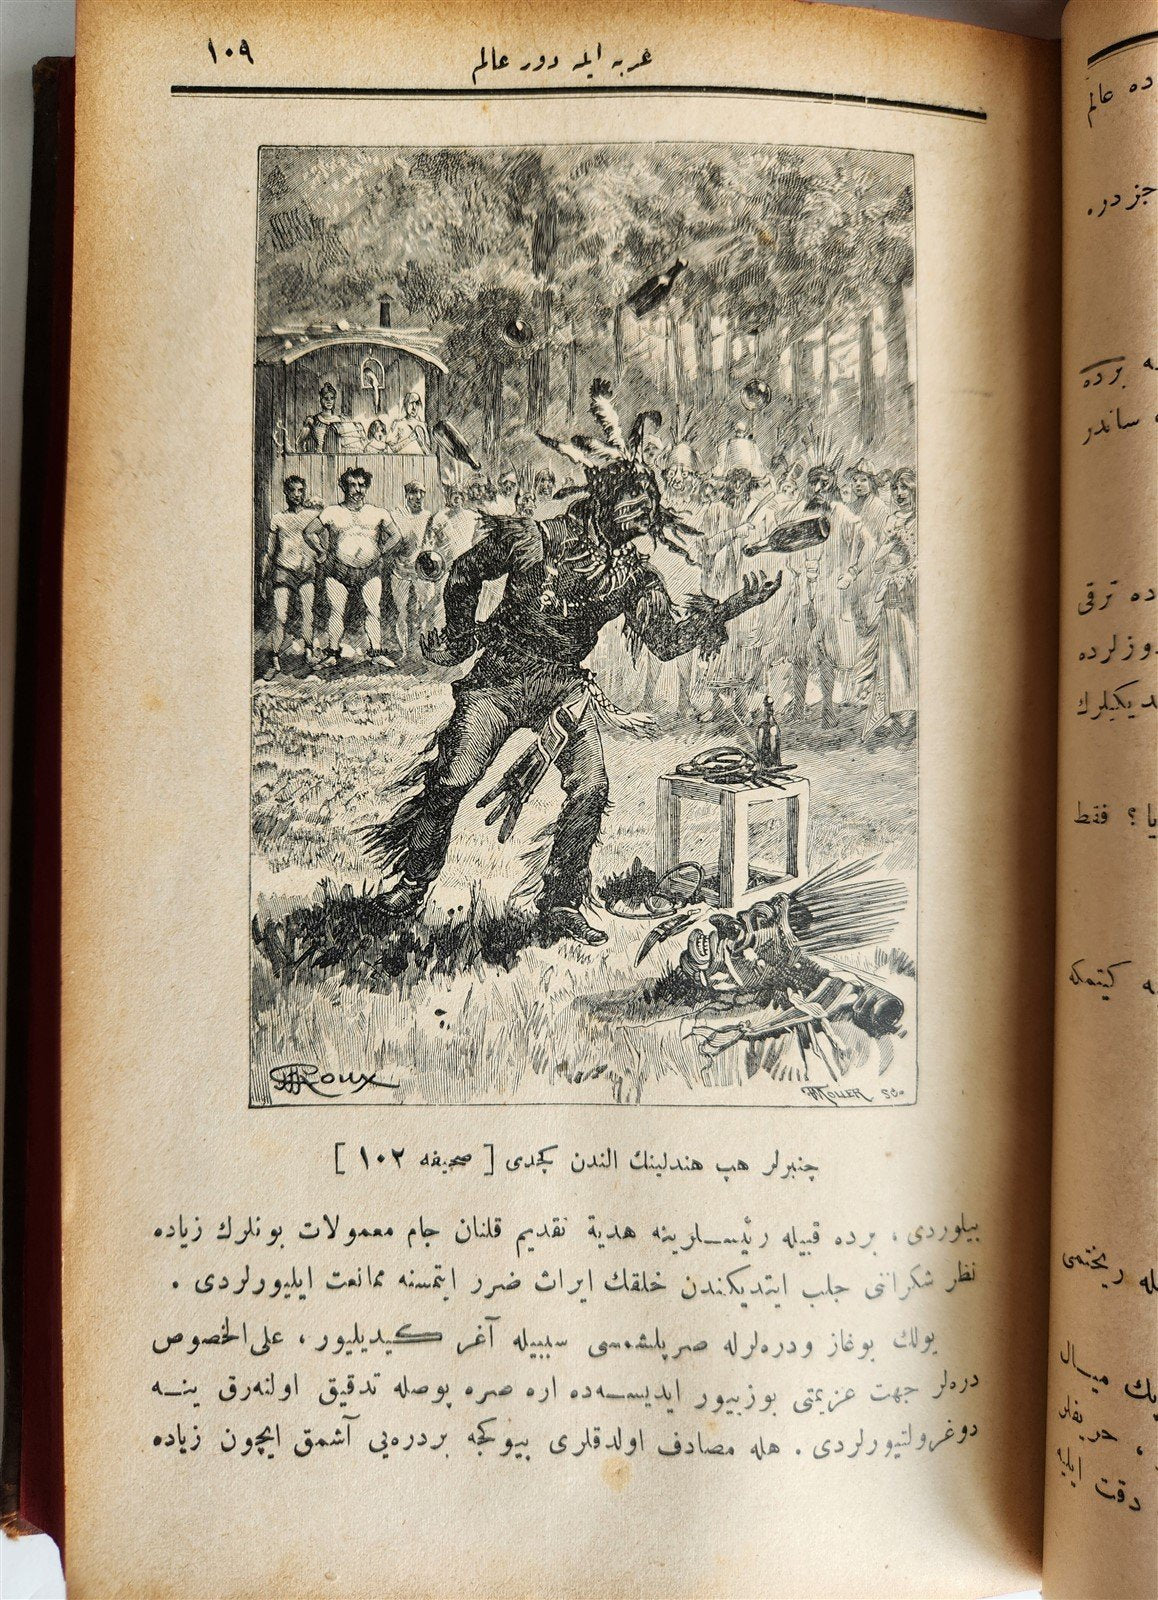 عربه ايله دور عالم
١٠٩
ROUX
MOLLER SC
چنبرلر هپ هندلينك الندن كچدى [ صحيفه ١٠٢ ]
بيلوردى ، برده قبيله رئيسلرينه هدية تقديم قلنان جام معمولات بونلرك زياده
نظر شكرانى جلب ايتديكندن خلقك ايراث ضرر ايتمسنه ممانعت ايليورلردى .
يولك بوغاز ودره‌لرله صرپلشمسى سببيله آغر كيديليور ، على الخصوص
دره‌لر جهت عزيمتى بوزييور ايديسه‌ده اره صره پوصله تدقيق اولنه‌رق ينه
دوغرولتيورلردى . هله مصادف اولدقلرى بيوكجه بردره‌يى آشمق ايچون زياده
ده عالم
جزدر .
برده
ساندر
ده ترقى
دوزلرده
ديكيلرك
يا ؟ فقط
كيتمكه
له ريختمى
يك ميسال
، حريفلر
دقت ايليه